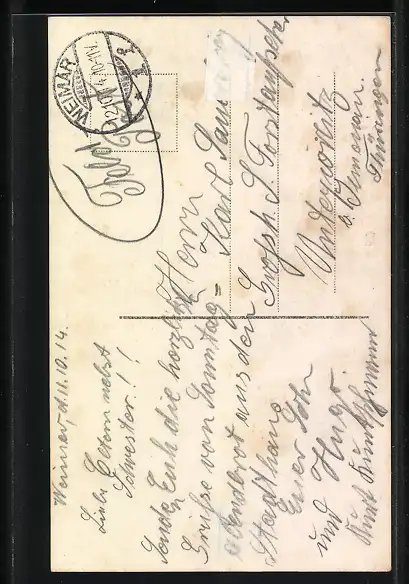 WEIMAR
12.10.14.10-11V.
Feld
Post
Herrn
Karl
Grossh. S. Forstaufseher
Unterpörlitz
b. Ilmenau.
Thüringen
Weimar, d. 11.10.14.
Liebe Eltern nebst
Schwester!!
Sende Euch die herzlichsten
Grüße vom Sonntag=
abendbrot aus dem
Stadthaus
Euer Sohn
und Hugo.
Kurt